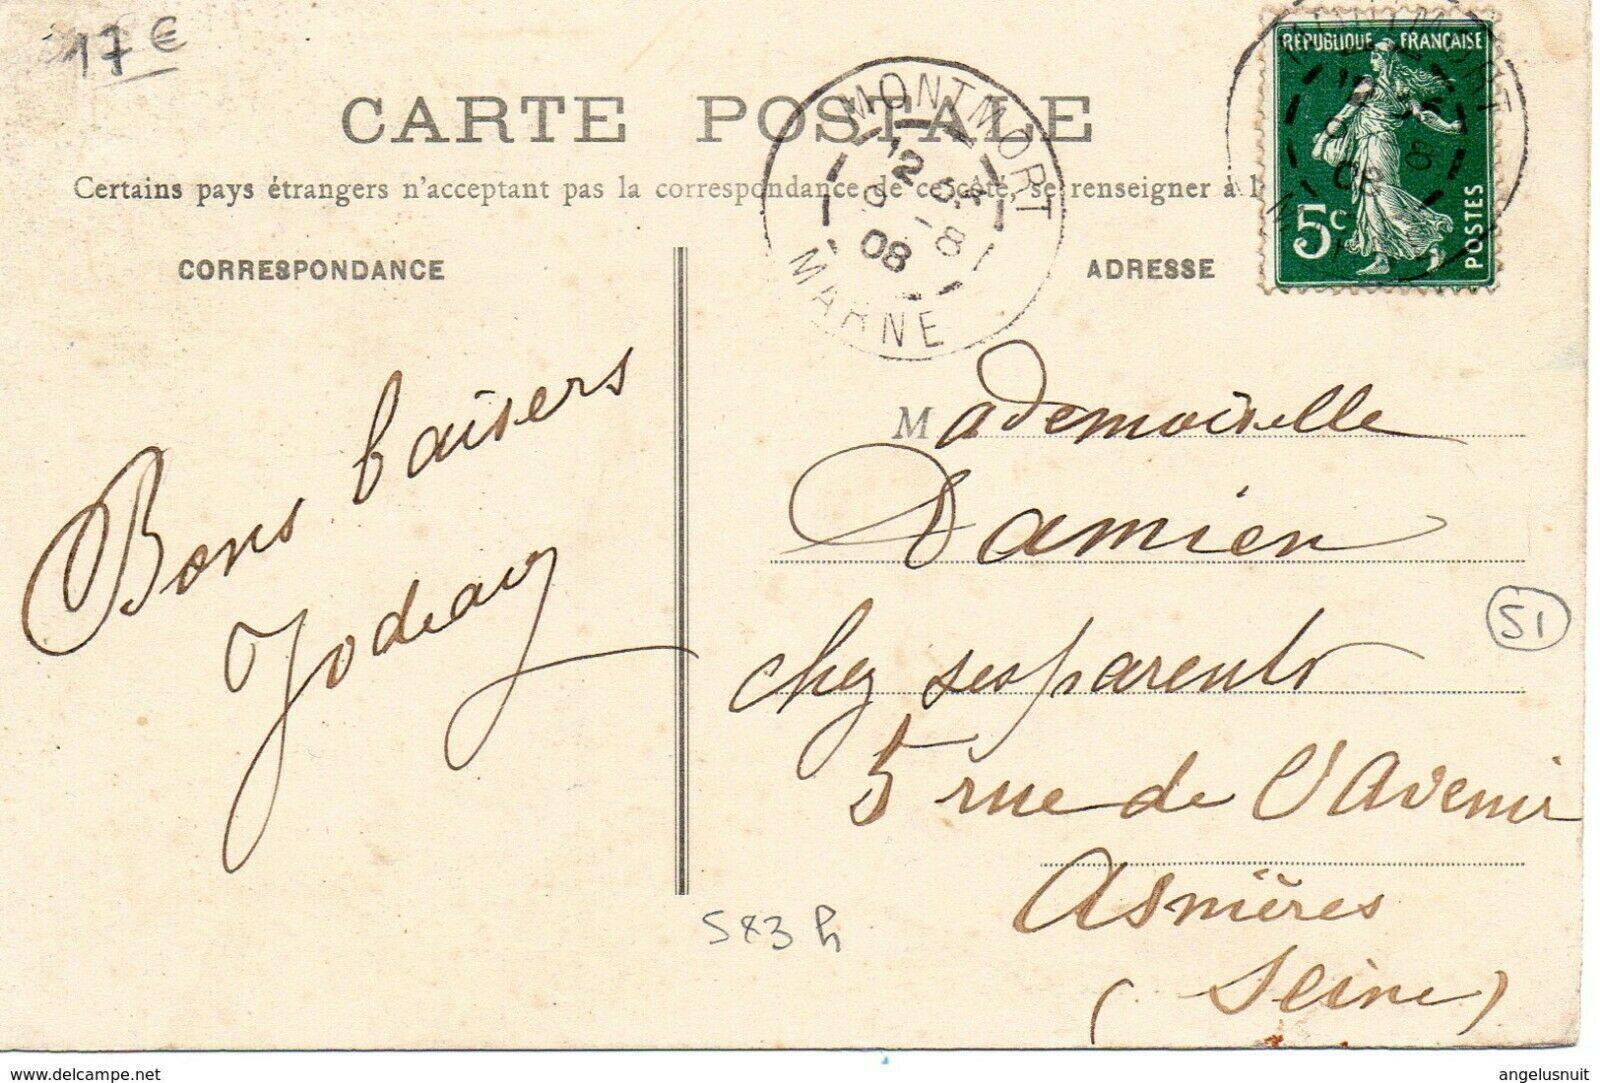 17 €
CARTE POSTALE
Certains pays étrangers n'acceptant pas la correspondance de ce côté, se renseigner à l
CORRESPONDANCE
ADRESSE
MONTMORT
12
8
08
MARNE
RÉPUBLIQUE FRANÇAISE
5c
POSTES
Bons baisers
Mademoiselle
Damien
chez ses parents
5 rue de l'Avenir
Asnières
(Seine)
51
583
delcampe.net
angelusnuit